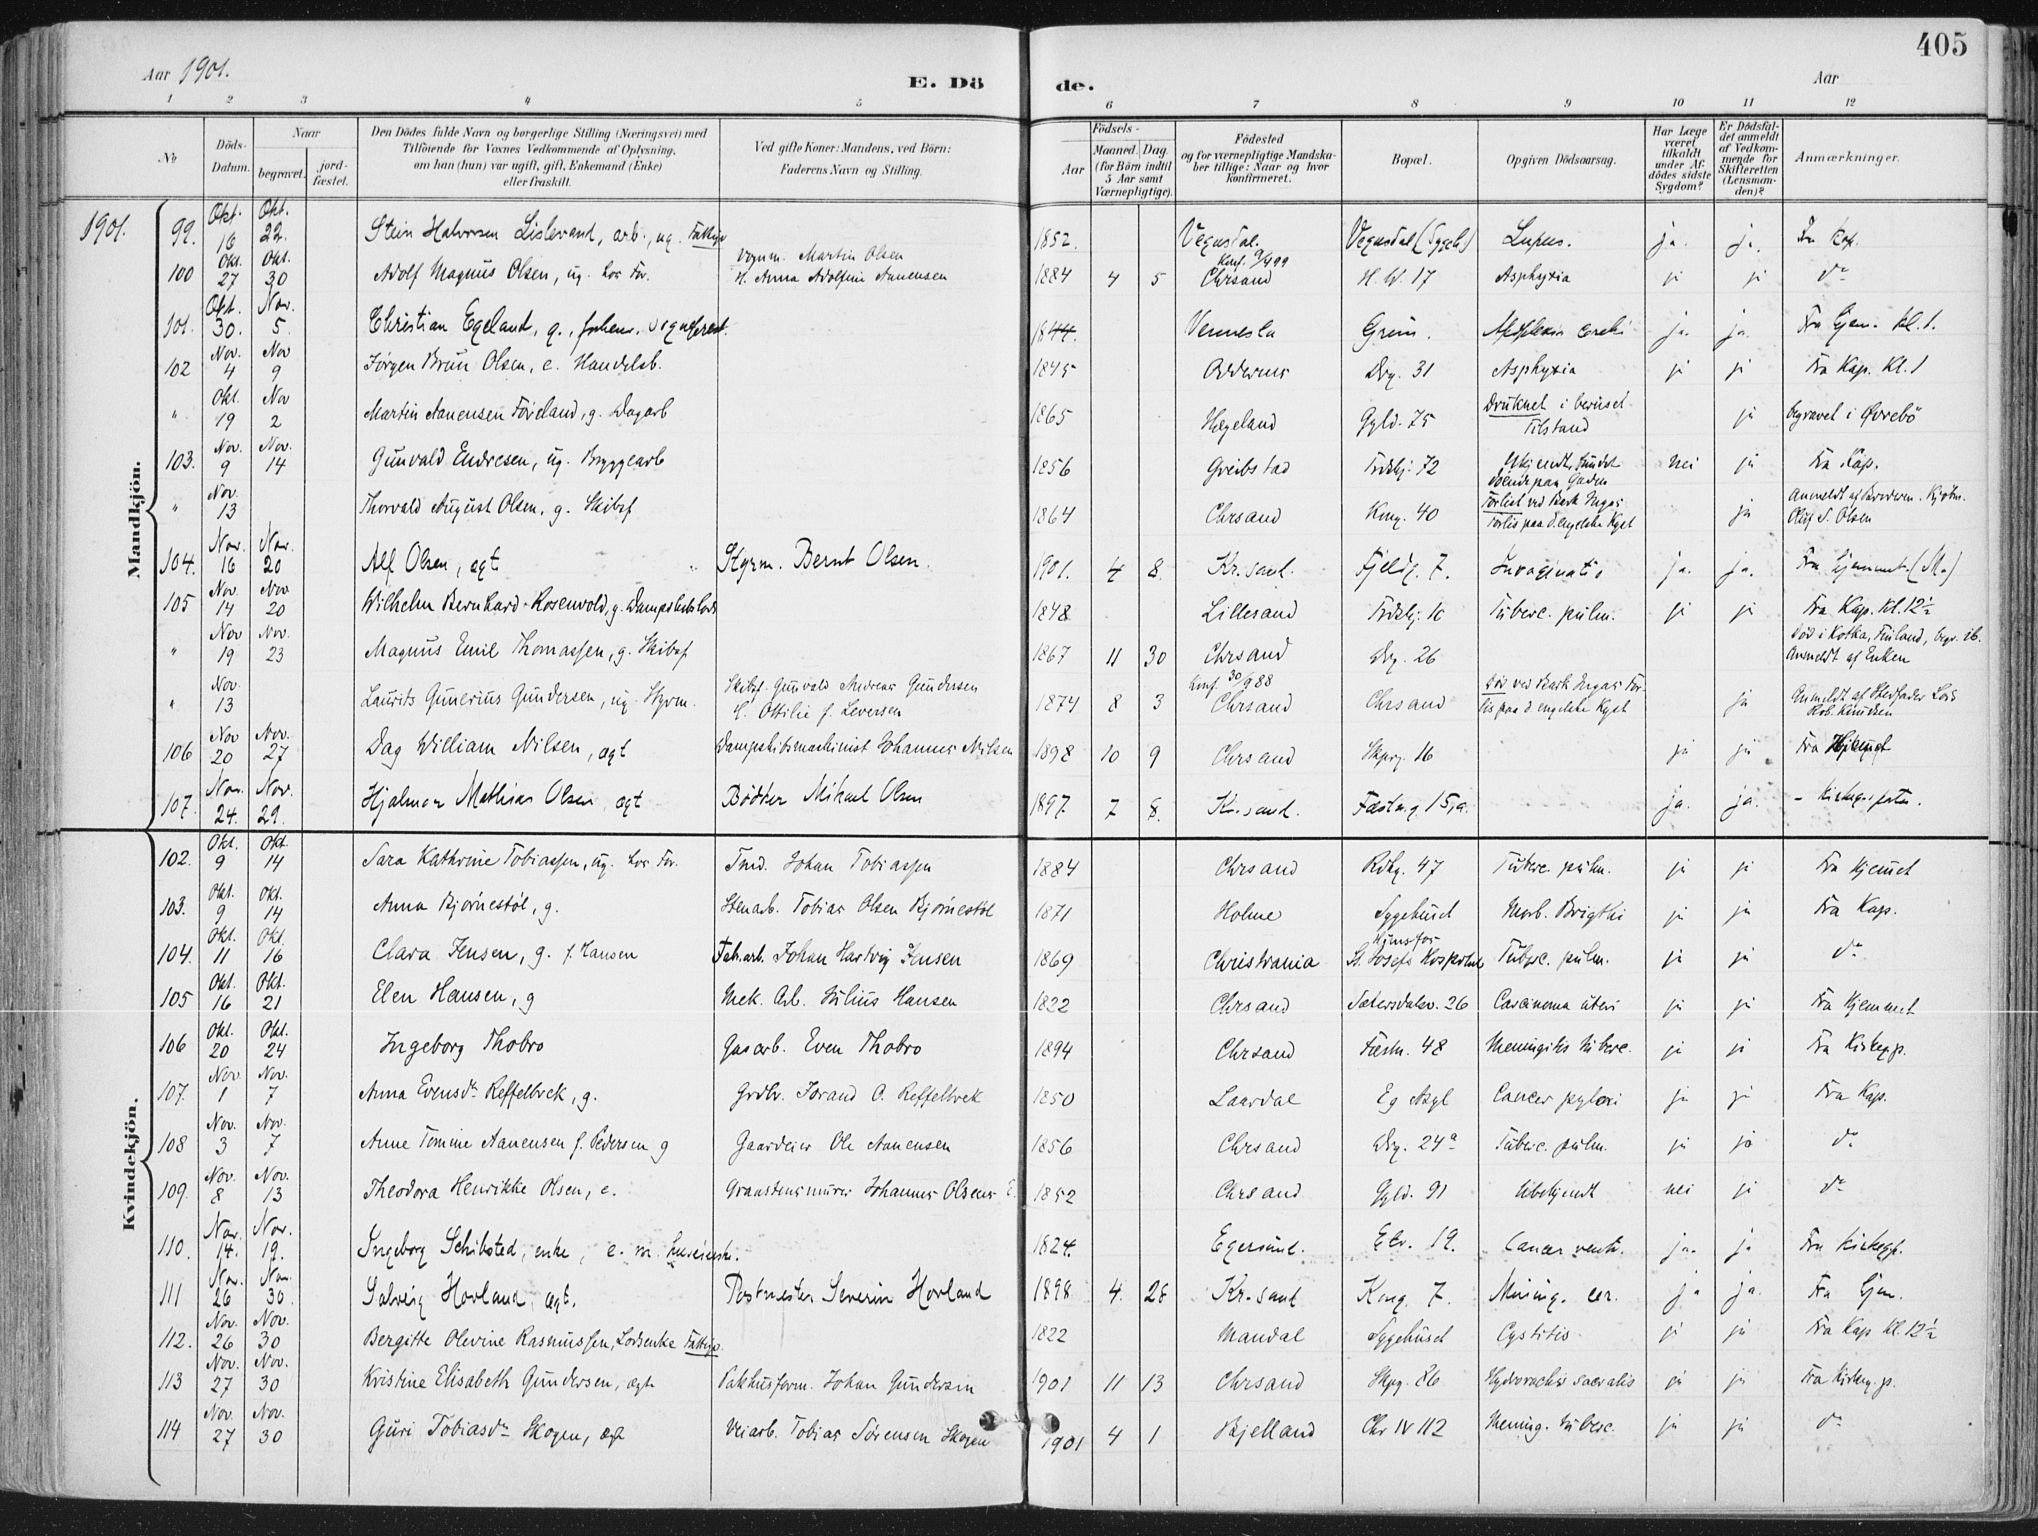 405
Aar 1901.
E. Dö
de.
Aar
1 2 3 4 5 6 7 8 9 10 11 12
No
Döds-Datum.
Naar
begravet.
jord-fæstet.
Den Dödes fulde Navn og borgerlige Stilling (Næringsvei) med
Tilföiende for Voxnes Vedkommende af Oplysning,
om han (hun) var ugift, gift, Enkemand (Enke)
eller fraskilt.
Ved gifte Koner: Mandens, ved Börn:
Faderens Navn og Stilling.
Födsels-
Aar
Maaned. Dag.
(for Börn indtil 5 Aar samt Værnepligtige).
Födested
og for værnepligtige Mandska-
ber tillige: Naar og hvor
konfirmeret.
Bopæl.
Opgiven Dödsaarsag.
Har Læge været tilkaldt under Afdödes sidste Sygdom?
Er Dödsfaldet anmeldt af Vedkommende for Skifteretten (Lensmanden)?
Anmærkninger.
Mandkjön.
1901. 99. Okt. 16 Okt. 22. Stein Halvorsen Lislevand, arb., ug. Fattigv 1852. Vegusdal. Vegusdal (Sygeh) Lupus. ja. ja. Fra Kap.
100 Okt. 27 Okt. 30 Adolf Magnus Olsen, ug. hos For. Vognm. Martin Olsen H. Anna Adolfine Aanensen 1884 4 5 Konf. 9/4 99 Chrsand H. W. 17 Asphyxia ja ja do
101. Okt. 30. Nov. 5. Christian Egeland, g., 1844. Vennesla Grim. ja. ja. Fra Hjem. kl. 1.
102 Nov. 4 Nov 9 Jörgen Brun Olsen, e. Handelsb. 1845 Oddernes Drg. 31 Asphyxia ja ja Fra Kap. Kl. 1
" Okt. 19 Nov 2 Martin Aanensen Föreland, g. Dagarb 1865 Hægeland Gyld. 75 Druknet i beruset Tilstand ja begravet i Øvrebö
103. Nov. 9 Nov. 14 Gunvald Endresen, ug. Bryggearb 1856 Greibstad Tordskj. 72 Ukjendt, fundet döende paa Gaden nei ja Fra Kap.
" Nov. 13 Thorvald August Olsen, g. Skibsf 1864 Chrsand Kong. 40 Forlist ved Bark Inga's Forlis paa d. engelske Kyst ja Anmeldt af Broderen. Kjöbm. Oluf S. Olsen
104. Nov. 16 Nov. 20 Alf Olsen, ægt " Styrm. Bernt Olsen. 1901. 4 8. Kr.sand. Fjeldg. 7. Invaginatio ja. ja. Fra Hjemmet. (M.)
105 Nov. 14 Nov 20 Wilhelm Bernhard Rosenvold, g. Dampskibslods 1848 Lillesand Tordskj. 16 Tuberc. pulm. ja ja Fra Kap. kl. 12½
" Nov 19 Nov. 23 Magnus Emil Thomassen, g. Skibsf 1867 11 30 Chrsand Drg. 26 Död i Kotka, Finland, begr. ib. Anmeldt af Enken
" Nov. 13 Laurits Gunerius Gundersen, ug. Styrm. Skibsf. Gunvald Andreas Gundersen H. Ottilie f. Leversen 1874 8 3 Konf. 30/9 88 Chrsand Chrsand Död ved Bark Inga's Forlis paa d. engelske Kyst ja Anmeldt af Stedfader Lods Rob. Knudsen
106 Nov 20 Nov. 27 Dag William Nilsen, ægt Dampskibsmaskinist Johannes Nilsen 1898 10 9 Chrsand Skipg. 16 ja ja Fra Hjemmet
107. Nov. 24. Nov. 29. Hjalmar Mathias Olsen, ægt Bödker Mikael Olsen 1897 7 8. Kr.sand. Fæstn.g 15,a. ja. ja. - Kirkeg.porten.
Kvindekjön.
102. Okt. 9 Okt 14 Sara Kathrine Tobiassen, ug. hos For. Tmd. Johan Tobiassen 1884 Chrsand Rdhg. 47 Tuberc. pulm. ja ja Fra Hjemmet
103. Okt. 9 Okt. 14 Anna Bjornestöl, g. Stenarb. Tobias Olsen Bjornestöl 1871 Holme Sygehuset Morb. Brigthi ja ja Fra Kap.
104. Okt. 11 Okt. 16 Clara Jensen, g. f. Hansen Fab.arb. Johan Hartvig Jensen 1869 Christiania Hunsfos St. Josefs Hospital Tuberc. pulm. ja ja do
105 Okt. 16 Okt. 21 Elen Hansen, g Mek. Arb. Julius Hansen 1822 Chrsand Sætersdalsv. 26 Carcinoma uteri ja ja Fra Hjemmet
106 Okt. 20 Okt. 24 Ingeborg Thobro Gasarb. Even Thobro 1894 Chrsand Fæstn. 48 Meningitis tuberc. ja ja Fra Kirkegp.
107. Nov. 1 Nov. 7 Anna Evensdr Reffelbæk, g. Grdbr. Torand O. Reffelbæk 1850 Laardal Eg Asyl Cancer pylori ja ja Fra Kap.
108 Nov. 3 Nov. 7 Anne Tomine Aanensen f. Pedersen g Gaardeier Ole Aanensen 1856 Chrsand Drg. 24a Tuberc. pulm. ja ja do
109. Nov. 8 Nov. 13 Theodora Henrikke Olsen, e. Graastensmurer Johannes Olsens E. 1852 Chrsand Gyld. 91 Ubekjendt nei ja do
110. Nov. 14. Nov. 19. Ingeborg Schibsted, enke, 1824. Egersund. Elv. 19. Cancer ventr. ja. ja Fra Kirkegp.
111 Nov. 26 Nov. 30 Solveig Hovland, ægt. Postmester Severin Hovland 1898 4. 28 Kr.sand Kong. 7. Mening. cer. ja ja. Fra Hjem.
112. Nov. 26 Nov. 30 Bergitte Olevine Rasmussen, Lodsenke Fattigv. 1822 Mandal Sygehuset Cystitis ja ja Fra Kap kl. 12½
113 Nov. 27 Nov. 30 Kristine Elisabeth Gundersen, ægt Pakhusform. Johan Gundersen 1901 11 13 Chrsand Skpg. 86 Hydrorachis sacralis ja ja Fra Kirkeg.p.
114 Nov. 27 Nov. 30 Guri Tobiasdr Skogen, ægt Veiarb. Tobias Sörensen Skogen 1901 4 1 Bjelland Chr IV 112 Mening. tuberc. ja ja do